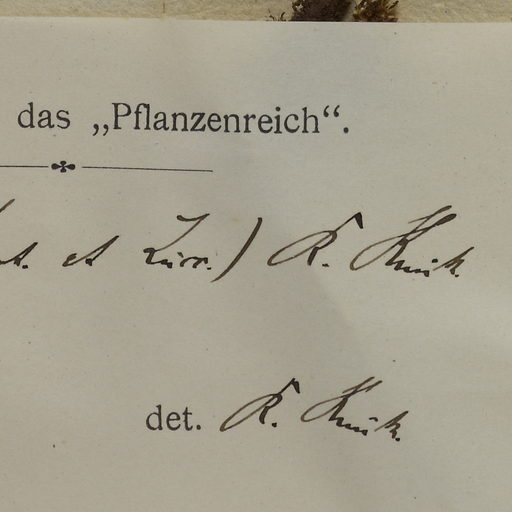 das „Pflanzenreich“.
et Zucc.) R. Knuth.
det. R. Knuth.